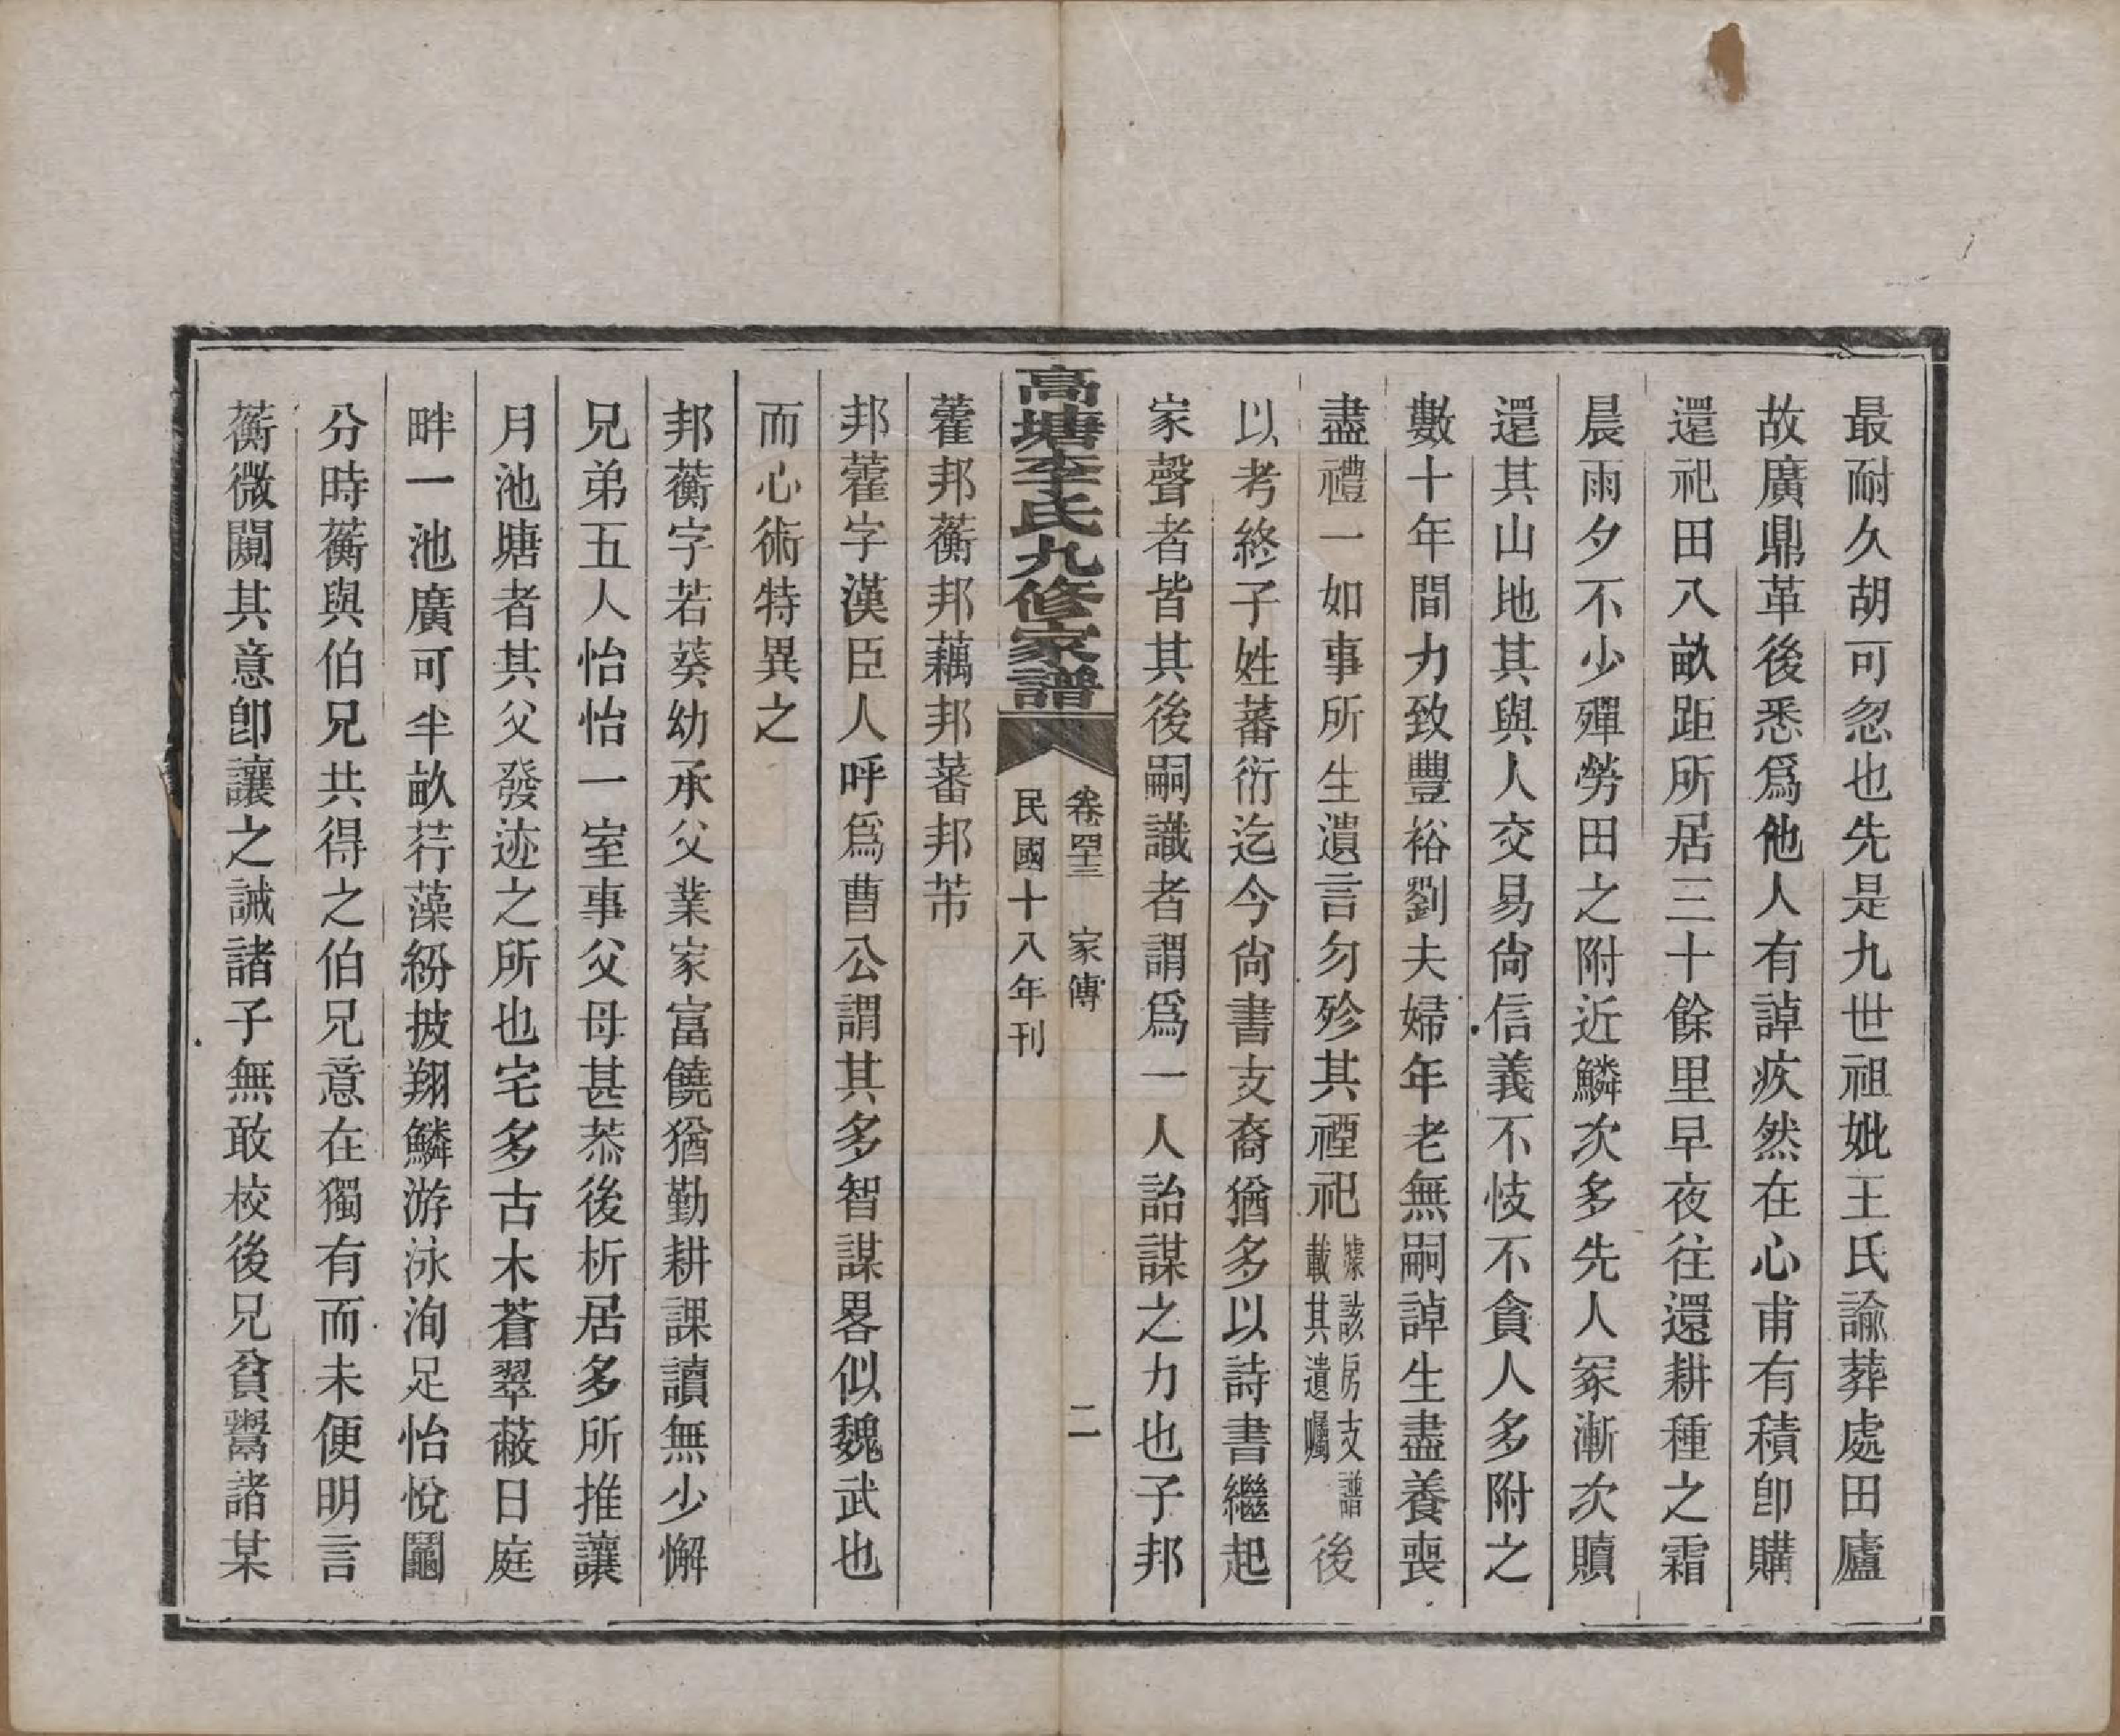 最耐久胡可忽也先是九世祖妣王氏諭葬處田廬
故廣鼎革後悉爲他人有誶疚然在心甫有積卽購
還祀田八畝距所居三十餘里早夜往還耕種之霜
晨雨夕不少殫勞田之附近鱗次多先人冢漸次贖
還其山地其與人交易尙信義不忮不貪人多附之
數十年間力致豐裕劉夫婦年老無嗣誶生盡養喪
盡禮一如事所生遺言勿殄其禋祀據該房支譜載其遺囑後
以考終子姓蕃衍迄今尙書支裔猶多以詩書繼起
家聲者皆其後嗣識者謂爲一人詒謀之力也子邦
高塘李氏九修家譜
卷四三 家傳 二
民國十八年刊
藿邦蘅邦藕邦蕃邦芾
邦藿字漢臣人呼爲曹公謂其多智謀畧似魏武也
而心術特異之
邦蘅字若葵幼承父業家富饒猶勤耕課讀無少懈
兄弟五人怡怡一室事父母甚恭後析居多所推讓
月池塘者其父發迹之所也宅多古木蒼翠蔽日庭
畔一池廣可半畝荇藻紛披翔鱗游泳洵足怡悅鬮
分時蘅與伯兄共得之伯兄意在獨有而未便明言
蘅微闚其意卽讓之誡諸子無敢校後兄貧鬻諸某